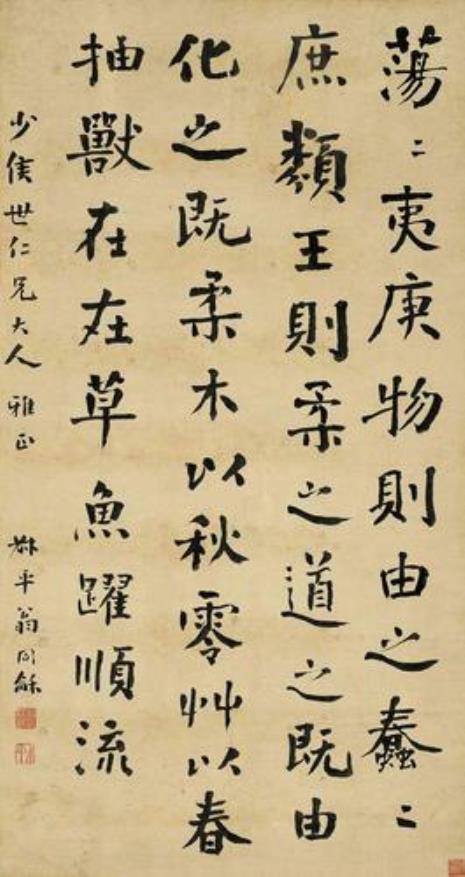 蕩〻夷庚物則由之蠢〻
庶類王則柔之道之既由
化之既柔木以秋零艸以春
抽獸在在草魚躍順流
少侯世仁兄大人雅正
叔平翁同龢